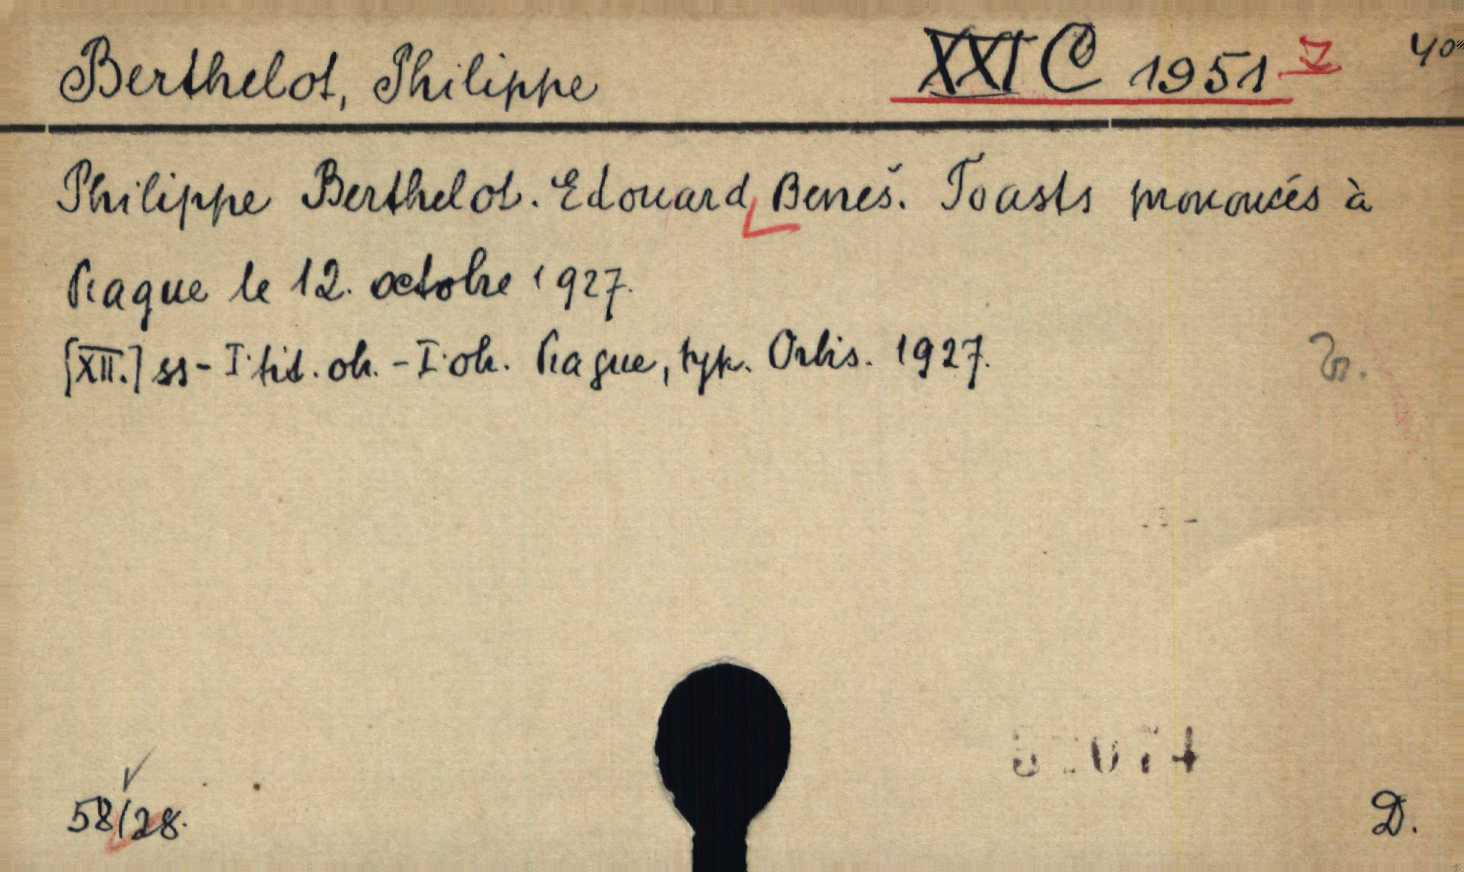 Berthelot, Philippe XXI C 1951 Z 40
Philippe Berthelot. Edouard Beneš. Toasts prononcés à
Prague le 12. octobre 1927.
[XII.] ss - I tit. ob. - I ob. Prague, typ. Orbis. 1927.
58/28.
D.